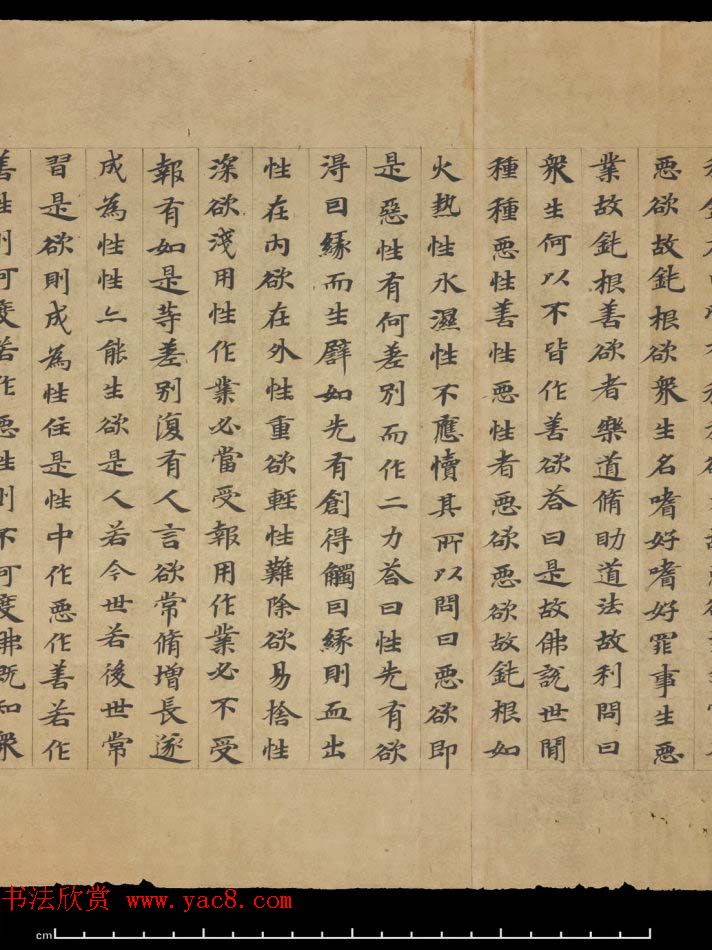 悪欲故鈍根欲衆生名嗜好嗜好罪事生悪
業故鈍根善欲者樂道脩助道法故利問曰
衆生何以不皆作善欲荅曰是故佛說世間
種種悪性善性悪性者悪欲悪欲故鈍根如
火熱性水濕性不應憒其所以問曰悪欲即
是惡性有何差別而作二力荅曰性先有欲
淂囙縁而生譬如先有創得觸囙縁則血出
性在内欲在外性重欲輕性難除欲易捨性
深欲淺用性作業必當受報用作業必不受
報有如是等差別復有人言欲常脩增長遂
成為性性亦能生欲是人若今世若後世常
習是欲則成為性住是性中作悪作善若作
善性則可度若作悪性則不可度佛既知衆
书法欣赏 www.yac8.com
cm